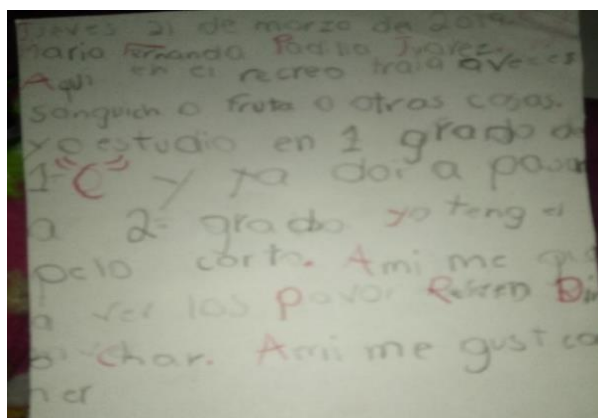 Jueves 21 de marzo de 2019
Maria Fernanda Padilla Juarez.
Aqui en el recreo traia aveces
sanguich o fruta o otras cosas.
yo estudio en 1 grado de
1="C" y ya doi a pasar
a 2= grado yo teng el
pelo cort. Ami me
a ver los Pavor
char. Ami me gust co
mer